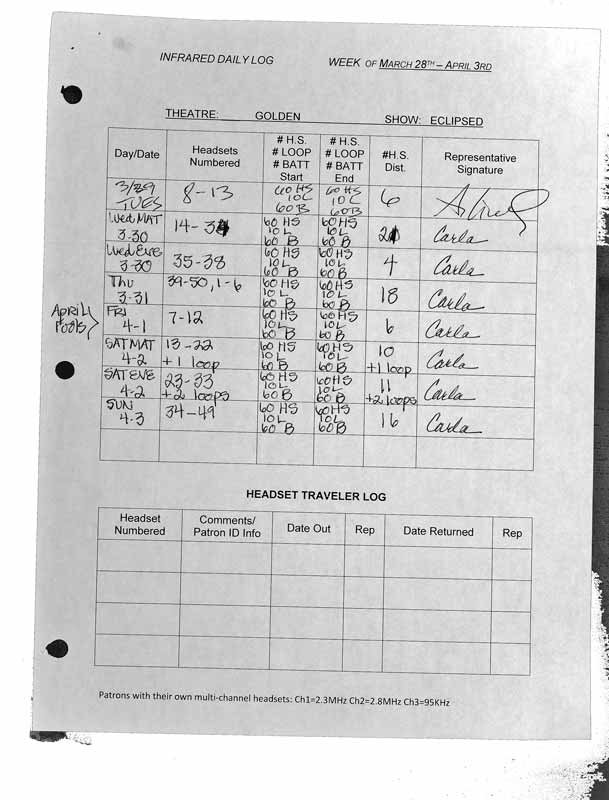 INFRARED DAILY LOG WEEK OF MARCH 28TH – APRIL 3RD
THEATRE: GOLDEN SHOW: ECLIPSED
Day/Date Headsets Numbered # H.S. # LOOP # BATT Start # H.S. # LOOP # BATT End #H.S. Dist. Representative Signature
3/29 TUES 8-13 60 HS 10 L 60 B 60 HS 10 L 60 B 6
Wed. MAT 3-30 14-34 60 HS 10 L 60 B 60 HS 10 L 60 B 21 Carla
Wed EVE 3-30 35-38 60 HS 10 L 60 B 60 HS 10 L 60 B 4 Carla
Thu 3-31 39-50, 1-6 60 HS 10 L 60 B 60 HS 10 L 60 B 18 Carla
April Fools} FRI 4-1 7-12 60 HS 10 L 60 B 60 HS 10 L 60 B 6 Carla
SAT MAT 4-2 13-22 +1 loop 60 HS 10 L 60 B 60 HS 10 L 60 B 10 +1 loop Carla
SAT EVE 4-2 23-33 +2 loops 60 HS 10 L 60 B 60 HS 10 L 60 B 11 +2 loops Carla
SUN 4-3 34-49 60 HS 10 L 60 B 60 HS 10 L 60 B 16 Carla
HEADSET TRAVELER LOG
Headset Numbered Comments/ Patron ID Info Date Out Rep Date Returned Rep
Patrons with their own multi-channel headsets: Ch1=2.3MHz Ch2=2.8MHz Ch3=95KHz